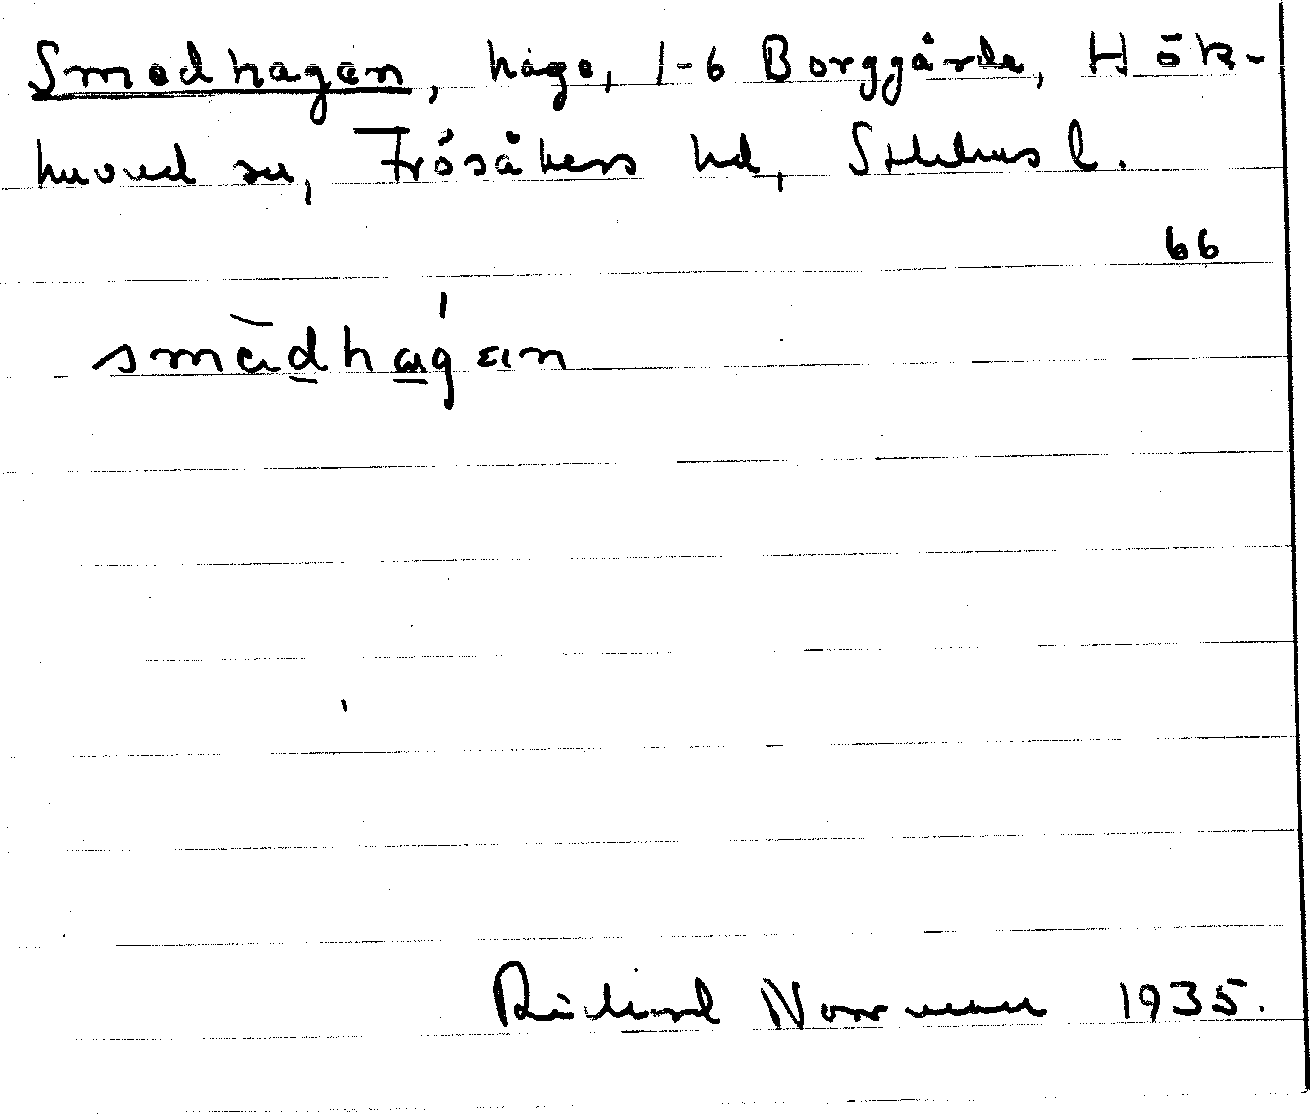 Smedhagen, hage, 1-6 Borggårde, Hök-
huvud sn, Frösåkers hd, Sthlms l.
66
smēdhagan
Richard Norrman 1935.